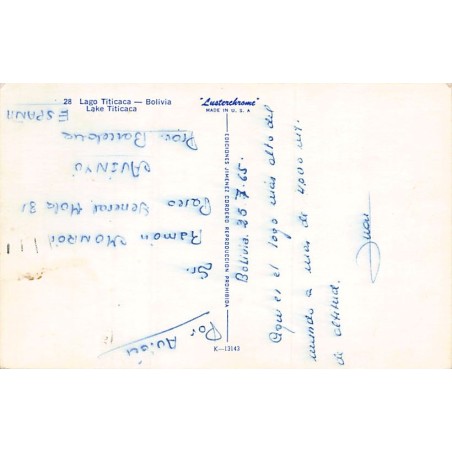 28 Lago Titicaca — Bolivia
Lake Titicaca
"Lusterchrome"
MADE IN U. S. A
EDICIONES JIMENEZ CORDERO REPRODUCCION PROHIBIDA
K—13143
Bolivia. 25.7.65.
Aqui es el lago más alto del
mundo a más de 4,000 mt.
de altitud.
Juan
Por
Avión
Sr.
Ramón
Paseo General Mola 31
Prov. Barcelona
ESPAÑA